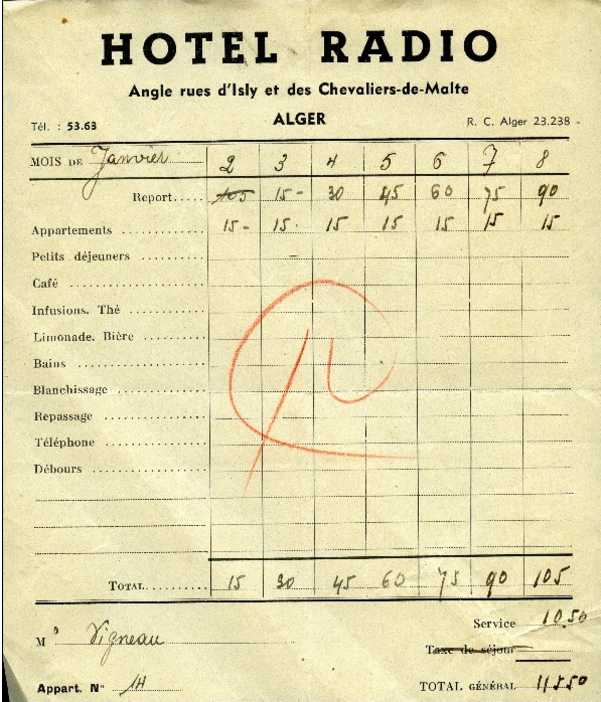 HOTEL RADIO
Angle rues d'Isly et des Chevaliers-de-Malte
Tél. : 53.63 ALGER R. C. Alger 23.238 -
MOIS DE Janvier 2 3 4 5 6 7 8
Report..... 105 15- 30 45 60 75 90
Appartements ........... 15- 15. 15 15 15 15 15
Petits déjeuners ...........
Café ...........
Infusions. Thé ...........
Limonade. Bière ...........
Bains ...........
Blanchissage ...........
Repassage ...........
Téléphone ...........
Débours ...........
TOTAL........... 15 30 45 60 75 90 105
Service 10.50
M Vigneau Taxe de séjour
Appart. N° 14 TOTAL GÉNÉRAL 115.50